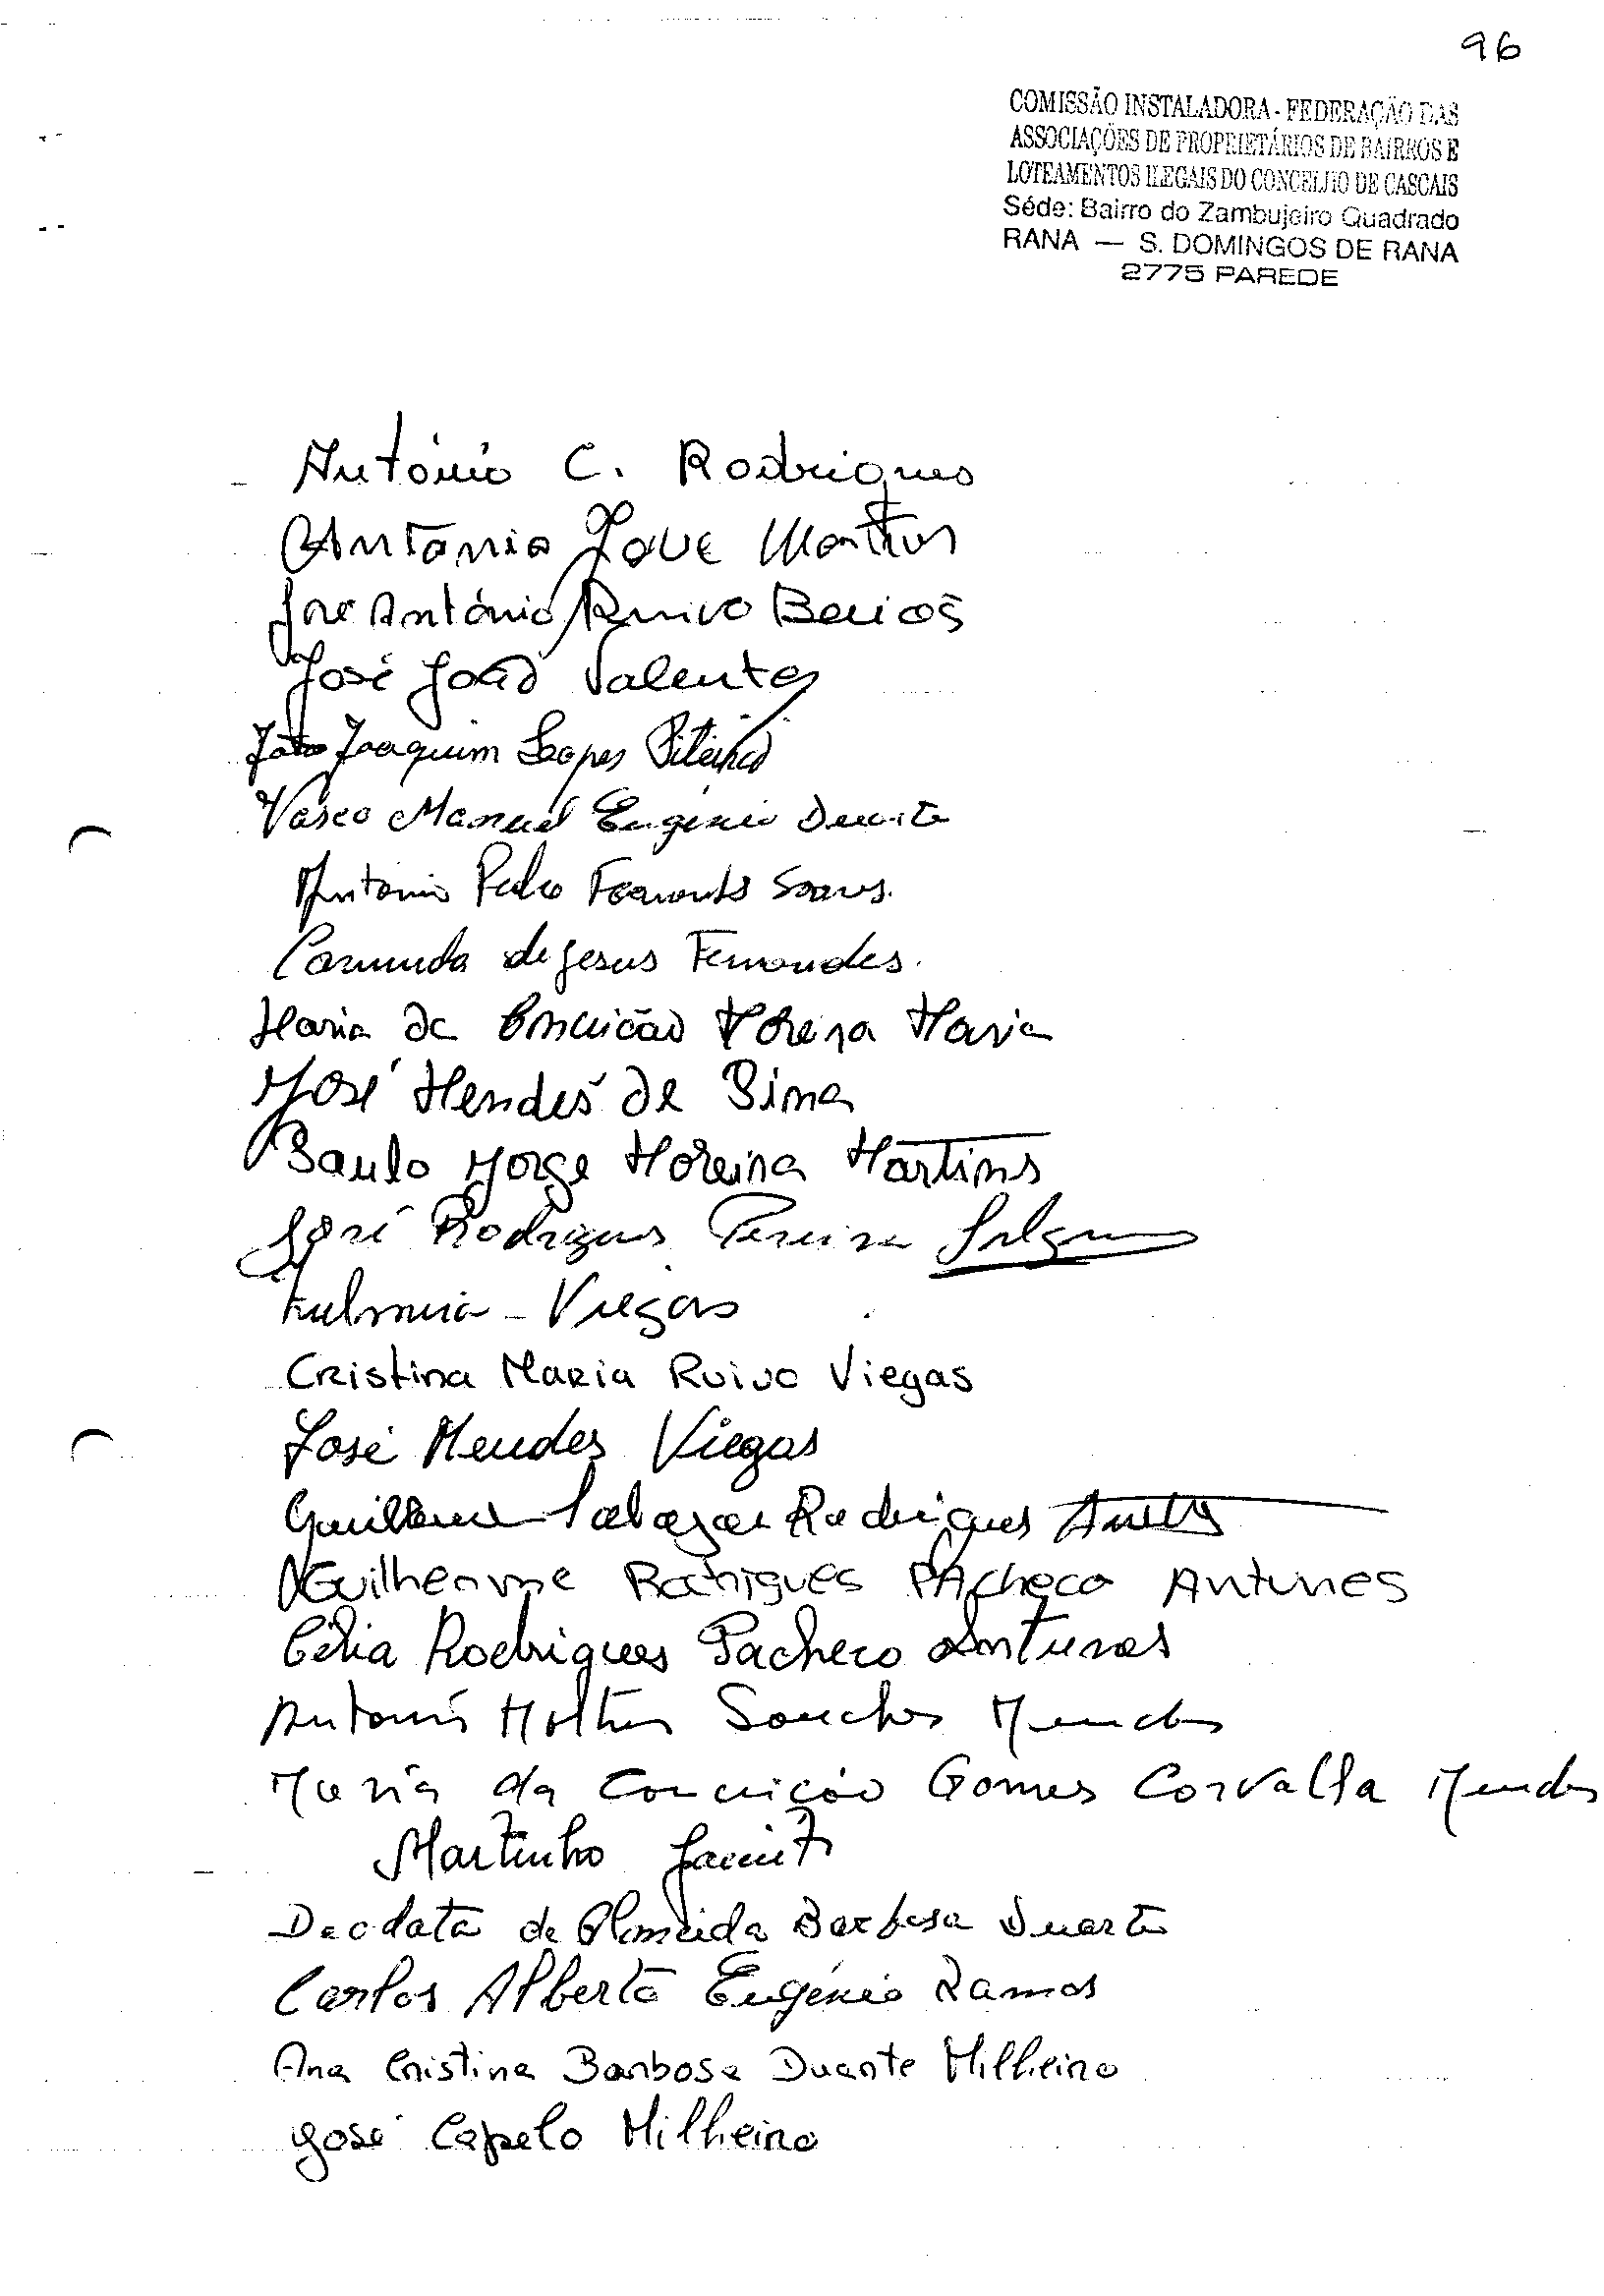 96
COMISSÃO INSTALADORA - FEDERAÇÃO DAS
ASSOCIAÇÕES DE PROPRIETÁRIOS DE BAIRROS E
LOTEAMENTOS ILEGAIS DO CONCELHO DE CASCAIS
Séde: Bairro do Zambujeiro Quadrado
RANA — S. DOMINGOS DE RANA
2775 PAREDE
António C. Rodrigues
António José Martins
José António Ruivo
José João Valente
João Joaquim Lopes
Vasco Manuel Eugénio Duarte
Antonio Pedro Fernandes Soares.
de Jesus Fernandes.
Maria da Conceição Moreira Maria
José Mendes de Lima
Paulo Jorge Moreira Martins
José Rodrigues Pereira
Viegas
Cristina Maria Ruivo Viegas
José Mendes Viegas
Guilherme Salazar Rodrigues
Guilherme Rodrigues Pacheco Antunes
Célia Rodrigues Pacheco Antunes
António Sanches Mendes
Maria da Conceição Gomes Corvalla Mendes
Martinho
Deodata de Almeida Barbosa Duarte
Carlos Alberto Eugénio Ramos
Ana Cristina Barbosa Duarte Milheiro
José Capelo Milheiro